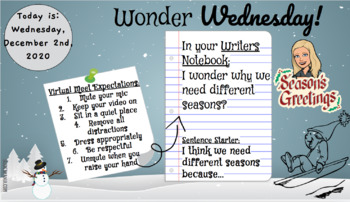 Today is:
Wednesday,
December 2nd,
2020
Wonder Wednesday!
Virtual Meet Expectations
1. Mute your mic
2. Keep your video on
3. Sit in a quiet place
4. Remove all
distractions
5. Dress appropriately
6. Be respectful
7. Unmute when you
raise your hand
In your Writers
Notebook:
I wonder why we
need different
seasons?
Sentence Starter:
I think we need
different seasons
because...
Season's
Greetings